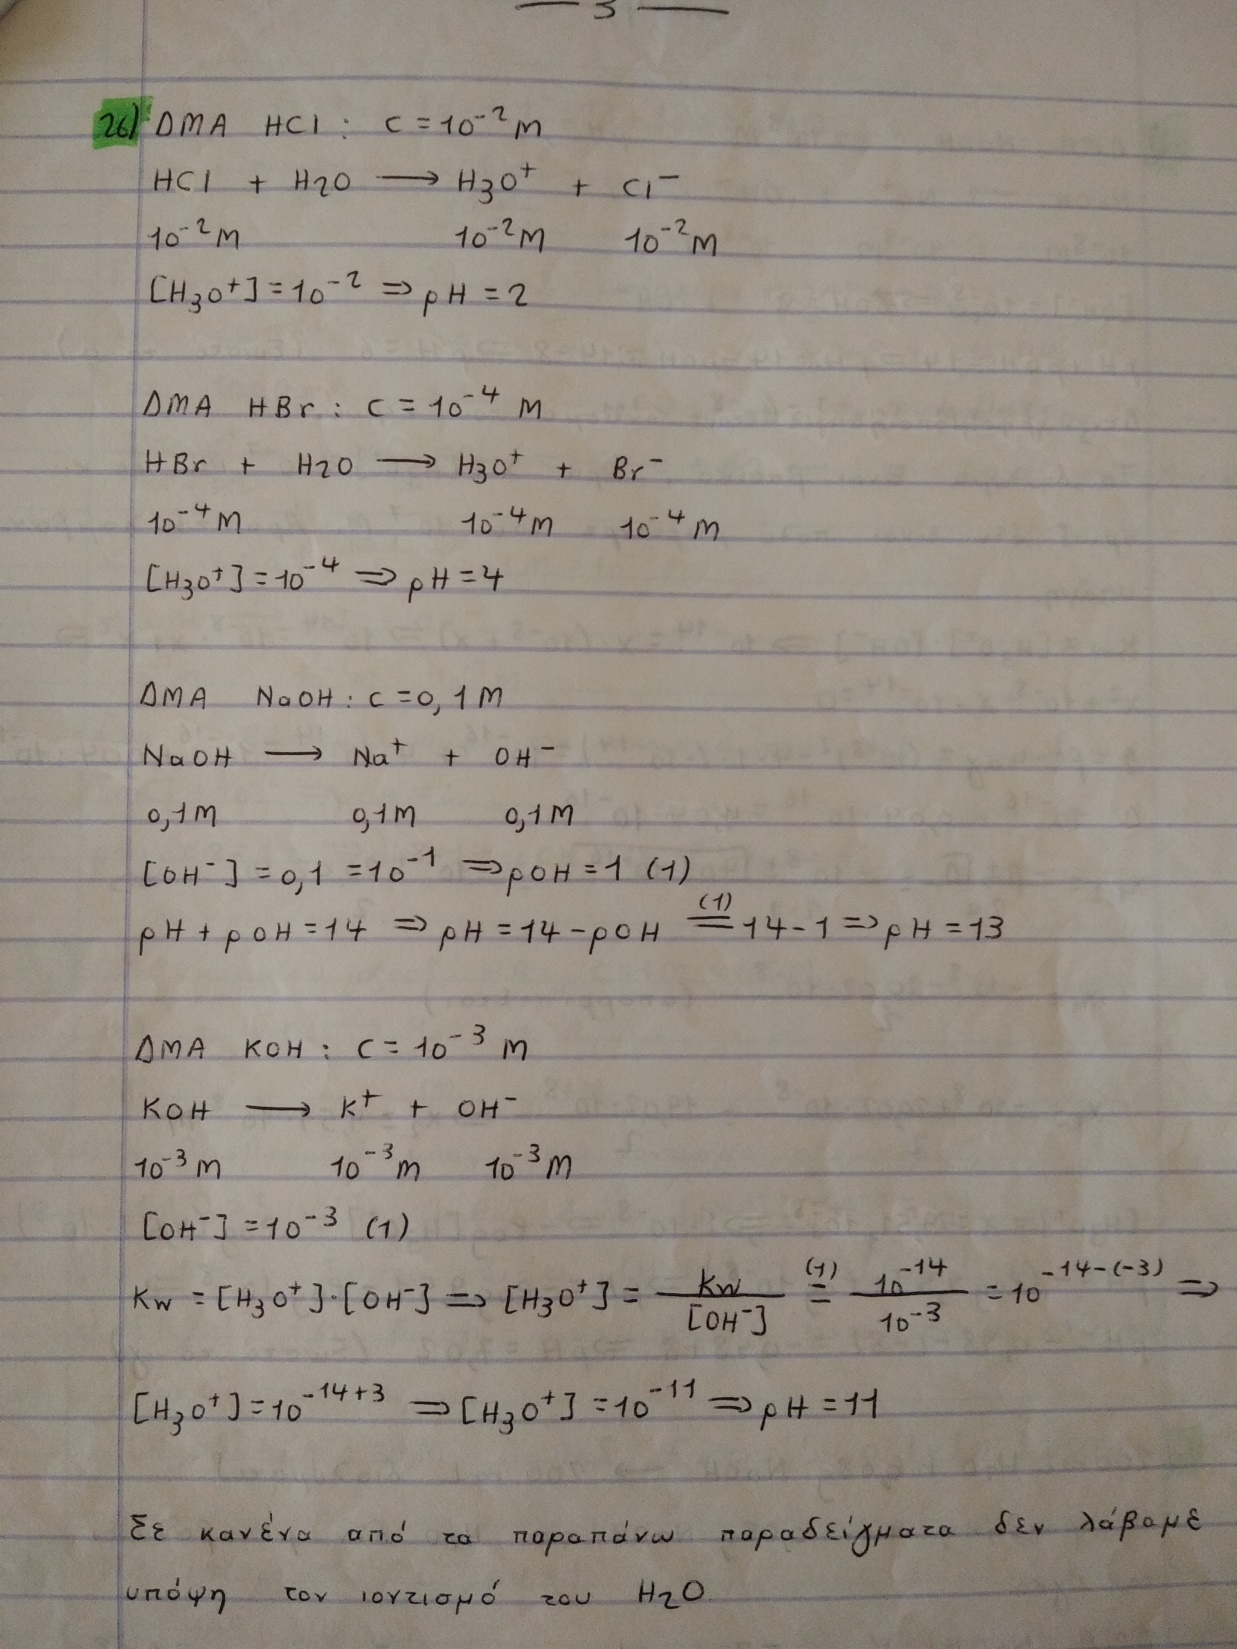 — 3 —
26) ΔΜΑ HCl : C = 10⁻² M
HCl + H2O ⟶ H₃O⁺ + Cl⁻
10⁻² M 10⁻² M 10⁻² M
[H₃O⁺] = 10⁻² ⇒ pH = 2
ΔΜΑ HBr : C = 10⁻⁴ M
HBr + H2O ⟶ H₃O⁺ + Br⁻
10⁻⁴ M 10⁻⁴ M 10⁻⁴ M
[H₃O⁺] = 10⁻⁴ ⇒ pH = 4
ΔΜΑ NaOH : C = 0,1 M
NaOH ⟶ Na⁺ + OH⁻
0,1 M 0,1 M 0,1 M
[OH⁻] = 0,1 = 10⁻¹ ⇒ pOH = 1 (1)
pH + pOH = 14 ⇒ pH = 14 - pOH (1)= 14 - 1 ⇒ pH = 13
ΔΜΑ KOH : C = 10⁻³ M
KOH ⟶ K⁺ + OH⁻
10⁻³ M 10⁻³ M 10⁻³ M
[OH⁻] = 10⁻³ (1)
Kw = [H₃O⁺]·[OH⁻] ⇒ [H₃O⁺] = Kw/[OH⁻] (1)= 10⁻¹⁴/10⁻³ = 10⁻¹⁴⁻⁽⁻³⁾ ⇒
[H₃O⁺] = 10⁻¹⁴⁺³ ⇒ [H₃O⁺] = 10⁻¹¹ ⇒ pH = 11
Σε κανένα από τα παραπάνω παραδείγματα δεν λάβαμε
υπόψη τον ιοντισμό του H2O.